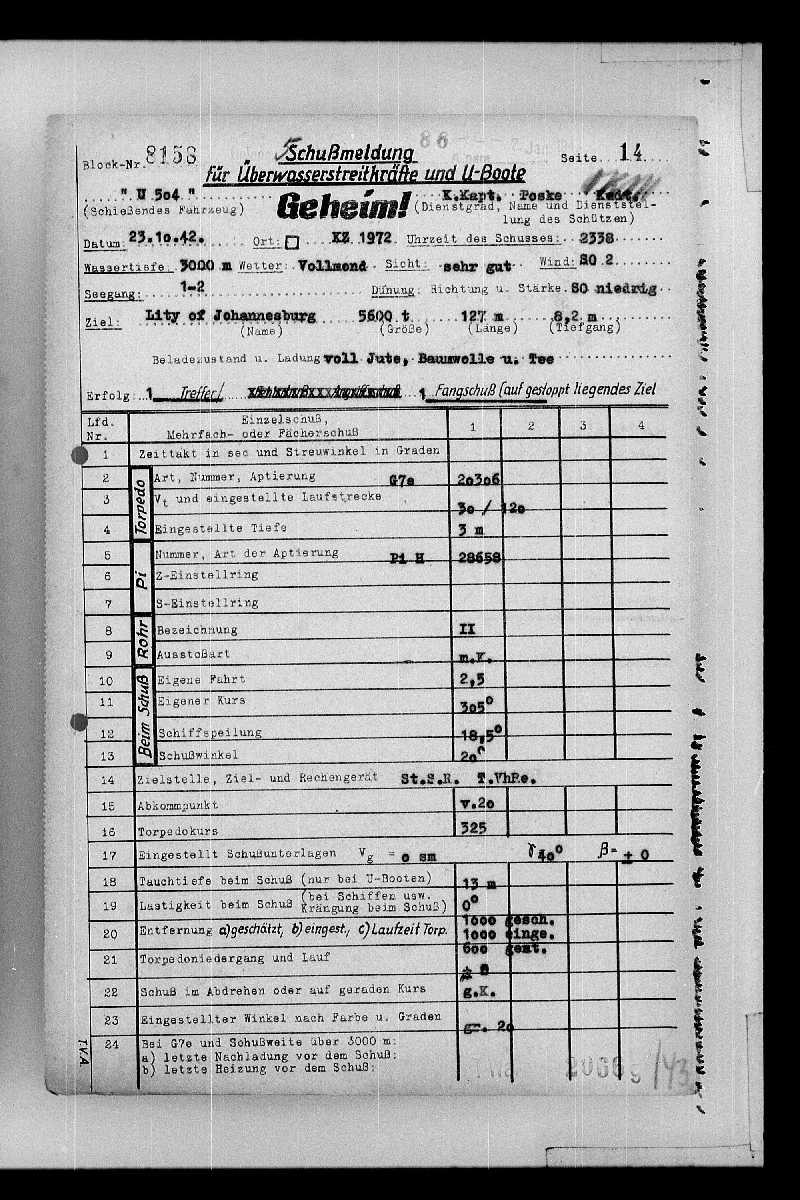 88
Block-Nr. 8158 Schußmeldung Seite 14
für Überwasserstreitkräfte und U-Boote
" U 5o4 " Geheim! K.Kapt. Poske
(Schießendes Fahrzeug) (Dienstgrad, Name und Dienststel-
lung des Schützen)
Datum: 23.1o.42. Ort: KZ 1972 Uhrzeit des Schusses: 2338
Wassertiefe: 3000 m Wetter: Vollmond Sicht: sehr gut Wind: SO 2
Seegang: 1-2 Dünung: Richtung u. Stärke. SO niedrig
Ziel: Lity of Johannesburg 5600 t 127 m 8,2 m
(Name) (Größe) (Länge) (Tiefgang)
Beladezustand u. Ladung voll Jute, Baumwolle u. Tee
Erfolg: 1 Treffer/ 1 Fangschuß (auf gestoppt liegendes Ziel
Lfd. Nr. Einzelschuß, Mehrfach- oder Fächerschuß 1 2 3 4
1 Zeittakt in sec und Streuwinkel in Graden
Torpedo
2 Art, Nummer, Aptierung G7e 2o3o6
3 Vt und eingestellte Laufstrecke 3o / 12o
4 Eingestellte Tiefe 3 m
Pi
5 Nummer, Art der Aptierung Pi H 28658
6 Z-Einstellring
7 S-Einstellring
Rohr
8 Bezeichnung II
9 Ausstoßart m.K.
Beim Schuß
10 Eigene Fahrt 2,5
11 Eigener Kurs 3o5°
12 Schiffspeilung 18,5°
13 Schußwinkel 2o°
14 Zielstelle, Ziel- und Rechengerät St.S.R. T.VhRe.
15 Abkommpunkt v.2o
16 Torpedokurs 325
17 Eingestellt Schußunterlagen Vg = o sm γ 4o° β= ± 0
18 Tauchtiefe beim Schuß (nur bei U-Booten) 13 m
19 Lastigkeit beim Schuß (bei Schiffen usw. Krängung beim Schuß) 0°
20 Entfernung a) geschätzt, b) eingest., c) Laufzeit Torp. 1000 gesch.
1000 einge.
600 gemt.
21 Torpedoniedergang und Lauf
22 Schuß im Abdrehen oder auf geraden Kurs g.K.
23 Eingestellter Winkel nach Farbe u. Graden gr. 2o
24 Bei G7e und Schußweite über 3000 m:
a) letzte Nachladung vor dem Schuß:
b) letzte Heizung vor dem Schuß:
T.V.A.
/43